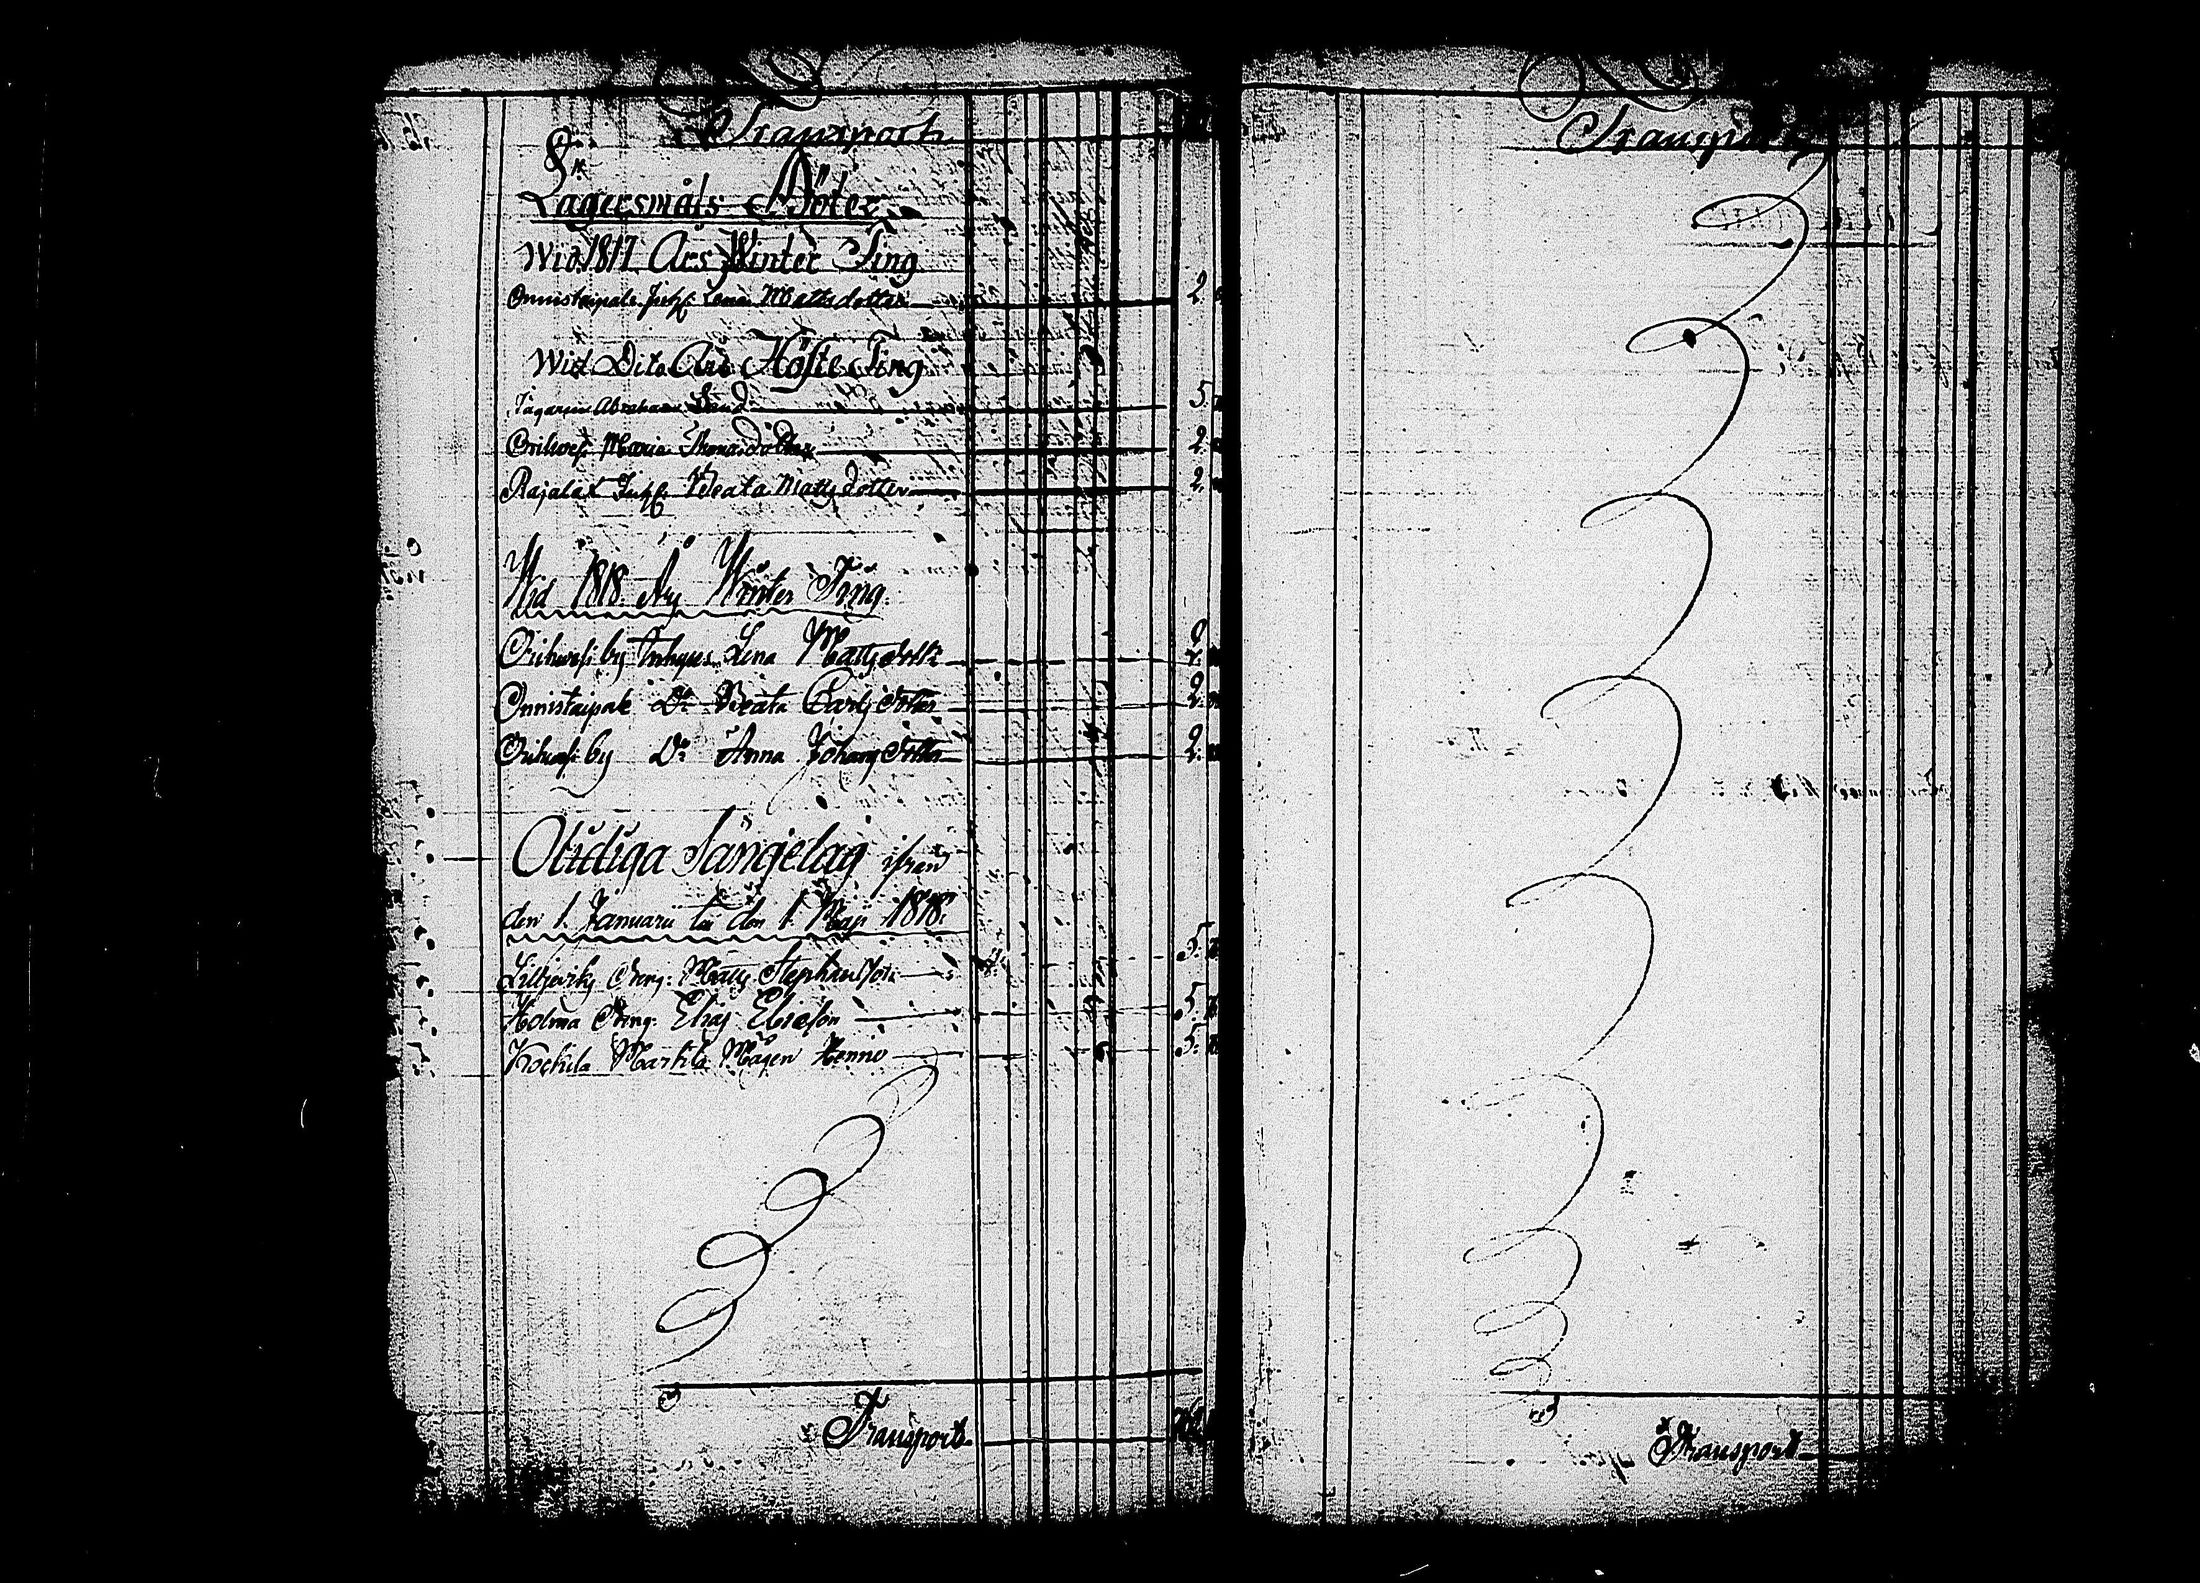 Transport
Sr
Lägersmåls Böter
Wid 1817 Års Winter Ting
Onnistaipale Inhs: Lena Mattsdotter 2.
Wid Dito Års Höste Ting
Jägaren Abraham Lund 5.
Orihvesi Maria Thomasdotter 2.
Rajalax Inhs: Beata Mattsdotter 2.
Wid 1818 Års Winter Ting
Orihvesi by Inhyses Lena Mattsdotter 2.
Onnistaipale Do Beata Carlsdotter 2.
Orihvesi by Do Anna Johansdotter 2.
Otidiga Sängelag ifrån
den 1. Januarii till den 1. Maji 1818.
Dreng: Matts Stephansson 5.
Holma Dreng: Elias Ericsson 5.
Kockila Martila Mågen Henric 5.
Transport
Transport
Transport